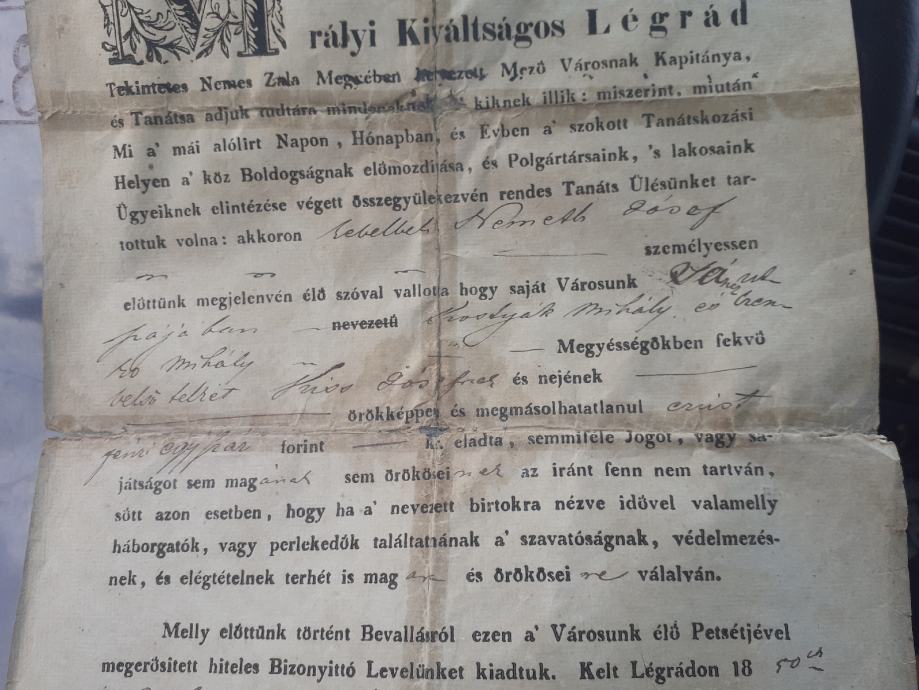 rályi Kiváltságos Légrád
Tekintetes Nemes Zala Megyében nevezett Mező Városnak Kapitánya,
és Tanátsa adjuk tudtára mindenaknek kiknek illik: miszerint, miután
Mi a' mái alólirt Napon, Hónapban, és Evben a' szokott Tanátskozási
Helyen a' köz Boldogságnak előmozditása, és Polgártársaink, 's lakosaink
Ügyeiknek elintézése végett összegyülekezvén rendes Tanáts Ülésünket tar-
tottuk volna: akkoron Németh Jósef
személyessen
előttünk megjelenvén élő szóval vallotta hogy saját Városunk
nevezetű Kostyják Mihály és
Mihály Megyésségökben fekvő
belső telrét Kiss Jósefnek és nejének
örökképpen és megmásolhatatlanul ezüst
forint ki eladta, semmiféle Jogot, vagy sa-
játságot sem magának sem örököseinek az iránt fenn nem tartván,
sőtt azon esetben, hogy ha a' nevezett birtokra nézve idővel valamelly
háborgatók, vagy perlekedők találtatnának a' szavatóságnak, védelmezés-
nek, és elégtételnek terhét is magára és örökösei re válalván.
Melly előttünk történt Bevallásról ezen a' Városunk élő Petsétjével
megerősitett hiteles Bizonyittó Levelünket kiadtuk. Kelt Légrádon 18 50